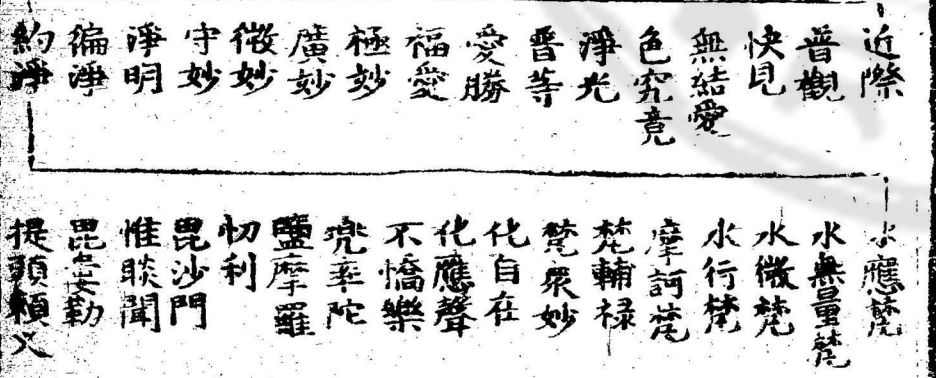 近際
普觀
快見
無結愛
色究竟
淨光
晋等
愛勝
福愛
極妙
廣妙
微妙
守妙
淨明
徧淨
約淨
水應梵
水無量梵
水微梵
水行梵
摩訶梵
梵輔禄
梵衆妙
化自在
化應聲
不憍樂
兜率陀
鹽摩羅
忉利
毘沙門
惟睒聞
毘婁勒
提頭頼叉